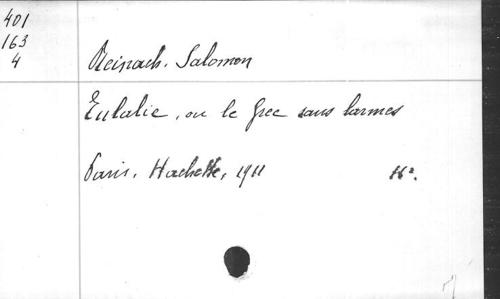 401
163
4
Reinach. Salomon
Eulalie, ou le Grec sans larmes
Paris, Hachette, 1911 16°.